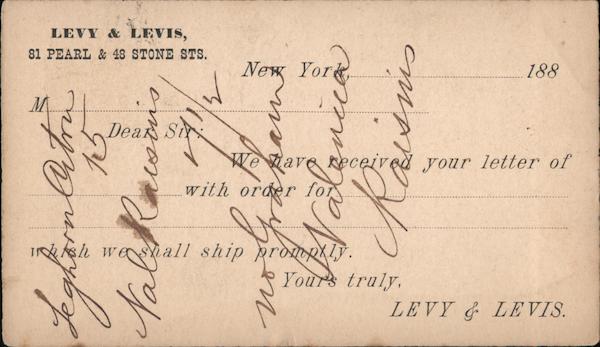 LEVY & LEVIS,
81 PEARL & 48 STONE STS.
New York, 188
M
Dear Sir:
We have received your letter of
with order for
which we shall ship promptly.
Yours truly,
LEVY & LEVIS.
Leghorn Citron
15
Val Raisins
no Graham
Valencia
Raisins